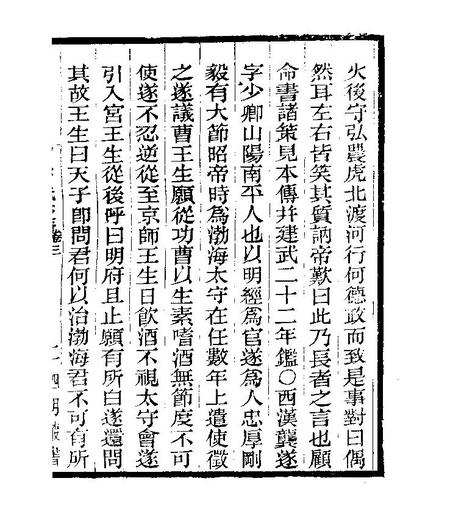 火後守弘農虎北渡河行何德政而致是事對曰偶
然耳左右皆笑其質訥帝歎曰此乃長者之言也顧
命書諸策見本傳并建武二十二年鑑○西漢龔遂
字少卿山陽南平人也以明經爲官遂爲人忠厚剛
毅有大節昭帝時爲渤海太守在任數年上遣使徵
之遂議曹王生願從功曹以生素嗜酒無節度不可
使遂不忍逆從至京師王生日飲酒不視太守會遂
引入宮王生從後呼曰明府且止願有所白遂還問
其故王生曰天子卽問君何以治渤海君不可有所
卷三
四明叢書